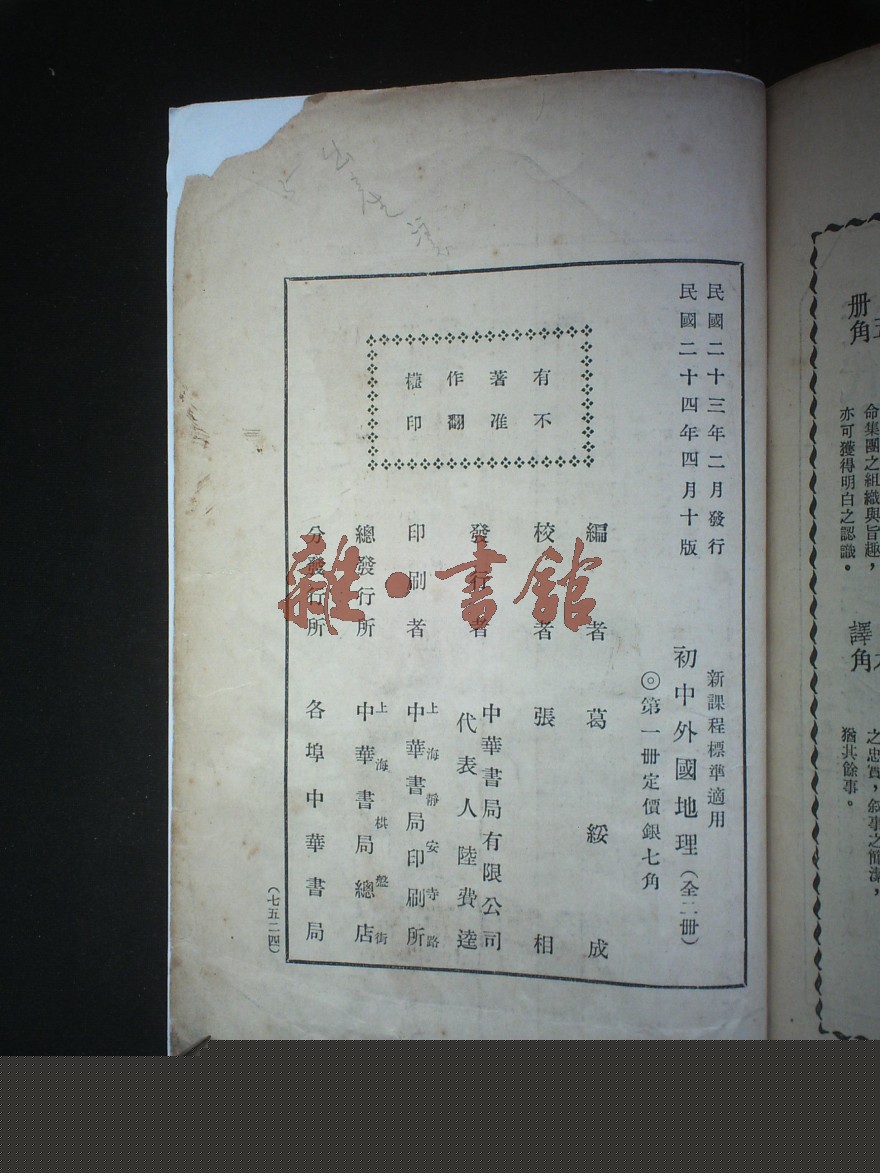 民國二十三年二月發行
民國二十四年四月十版
有著作權
不准翻印
新課程標準適用
初中外國地理(全二冊)
◎第一冊定價銀七角
編者 葛綏成
校者 張相
發行者 中華書局有限公司
代表人 陸費逵
印刷者 上海靜安寺路
中華書局印刷所
總發行所 上海棋盤街
中華書局總店
分發行所 各埠中華書局
(七五二四)
雜·書館
冊
角
命集團之組織與旨趣，
亦可獲得明白之認識。
譯
角
之忠實，敘事之簡潔，
猶其餘事。